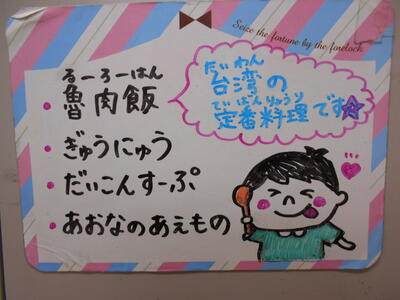 Seize the fortune by the forelock
るーろーはん
魯肉飯
だいわん
台湾の
ていばんりょうり
定番料理です☆
• ぎゅうにゅう
• だいこんすーぷ
• あおなのあえもの